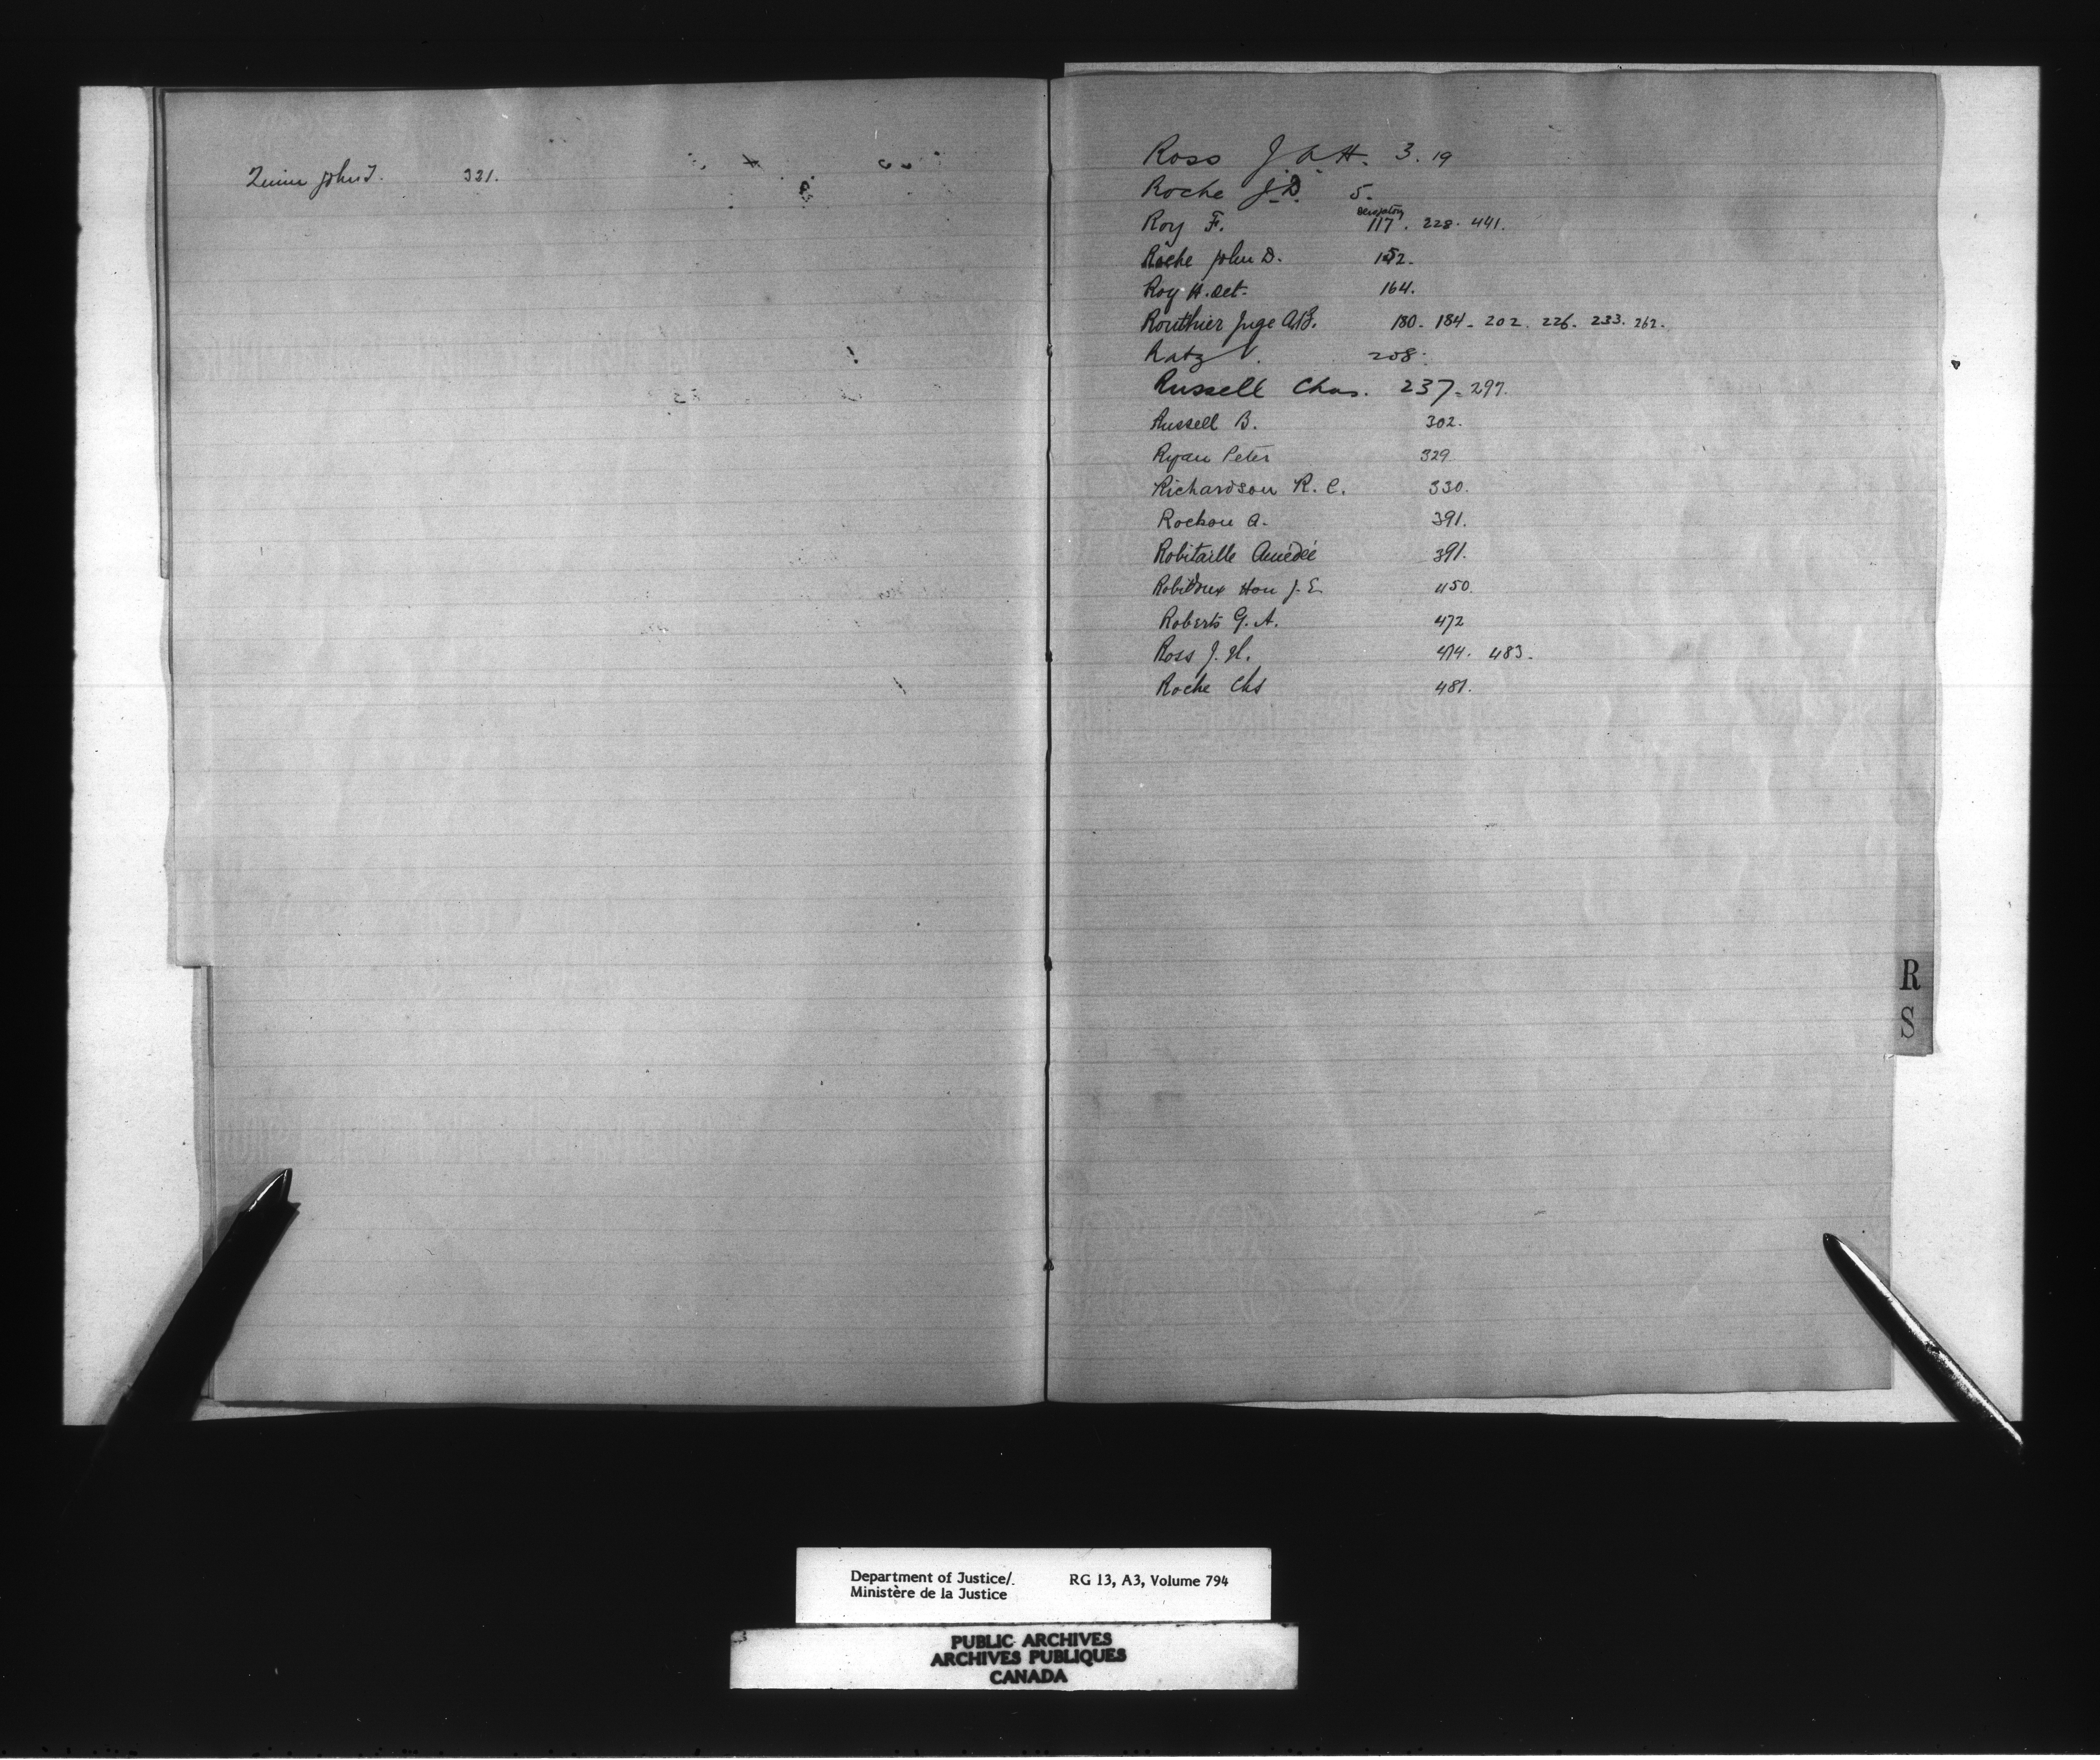 Quinn John J. 331.
Ross J. A. H. 3. 19
Roche J. D. 5.
Roy F. 117. 228. 441.
Roche John D. 152.
Roy H. Oct. 164.
Routhier Juge A.B. 180. 184. 202. 226. 233. 262.
Ratz V. 208.
Russell Chas. 237. 297.
Russell B. 302.
Ryan Peter 329
Richardson R. C. 330.
Rochon A. 391.
Robitaille Amédée 391.
Robidoux Hon J. E. 450.
Roberts G. A. 472
Ross J. H. 474. 483.
Roche Chs 481.
R
S
Department of Justice/.
Ministère de la Justice
RG 13, A3, Volume 794
PUBLIC ARCHIVES
ARCHIVES PUBLIQUES
CANADA